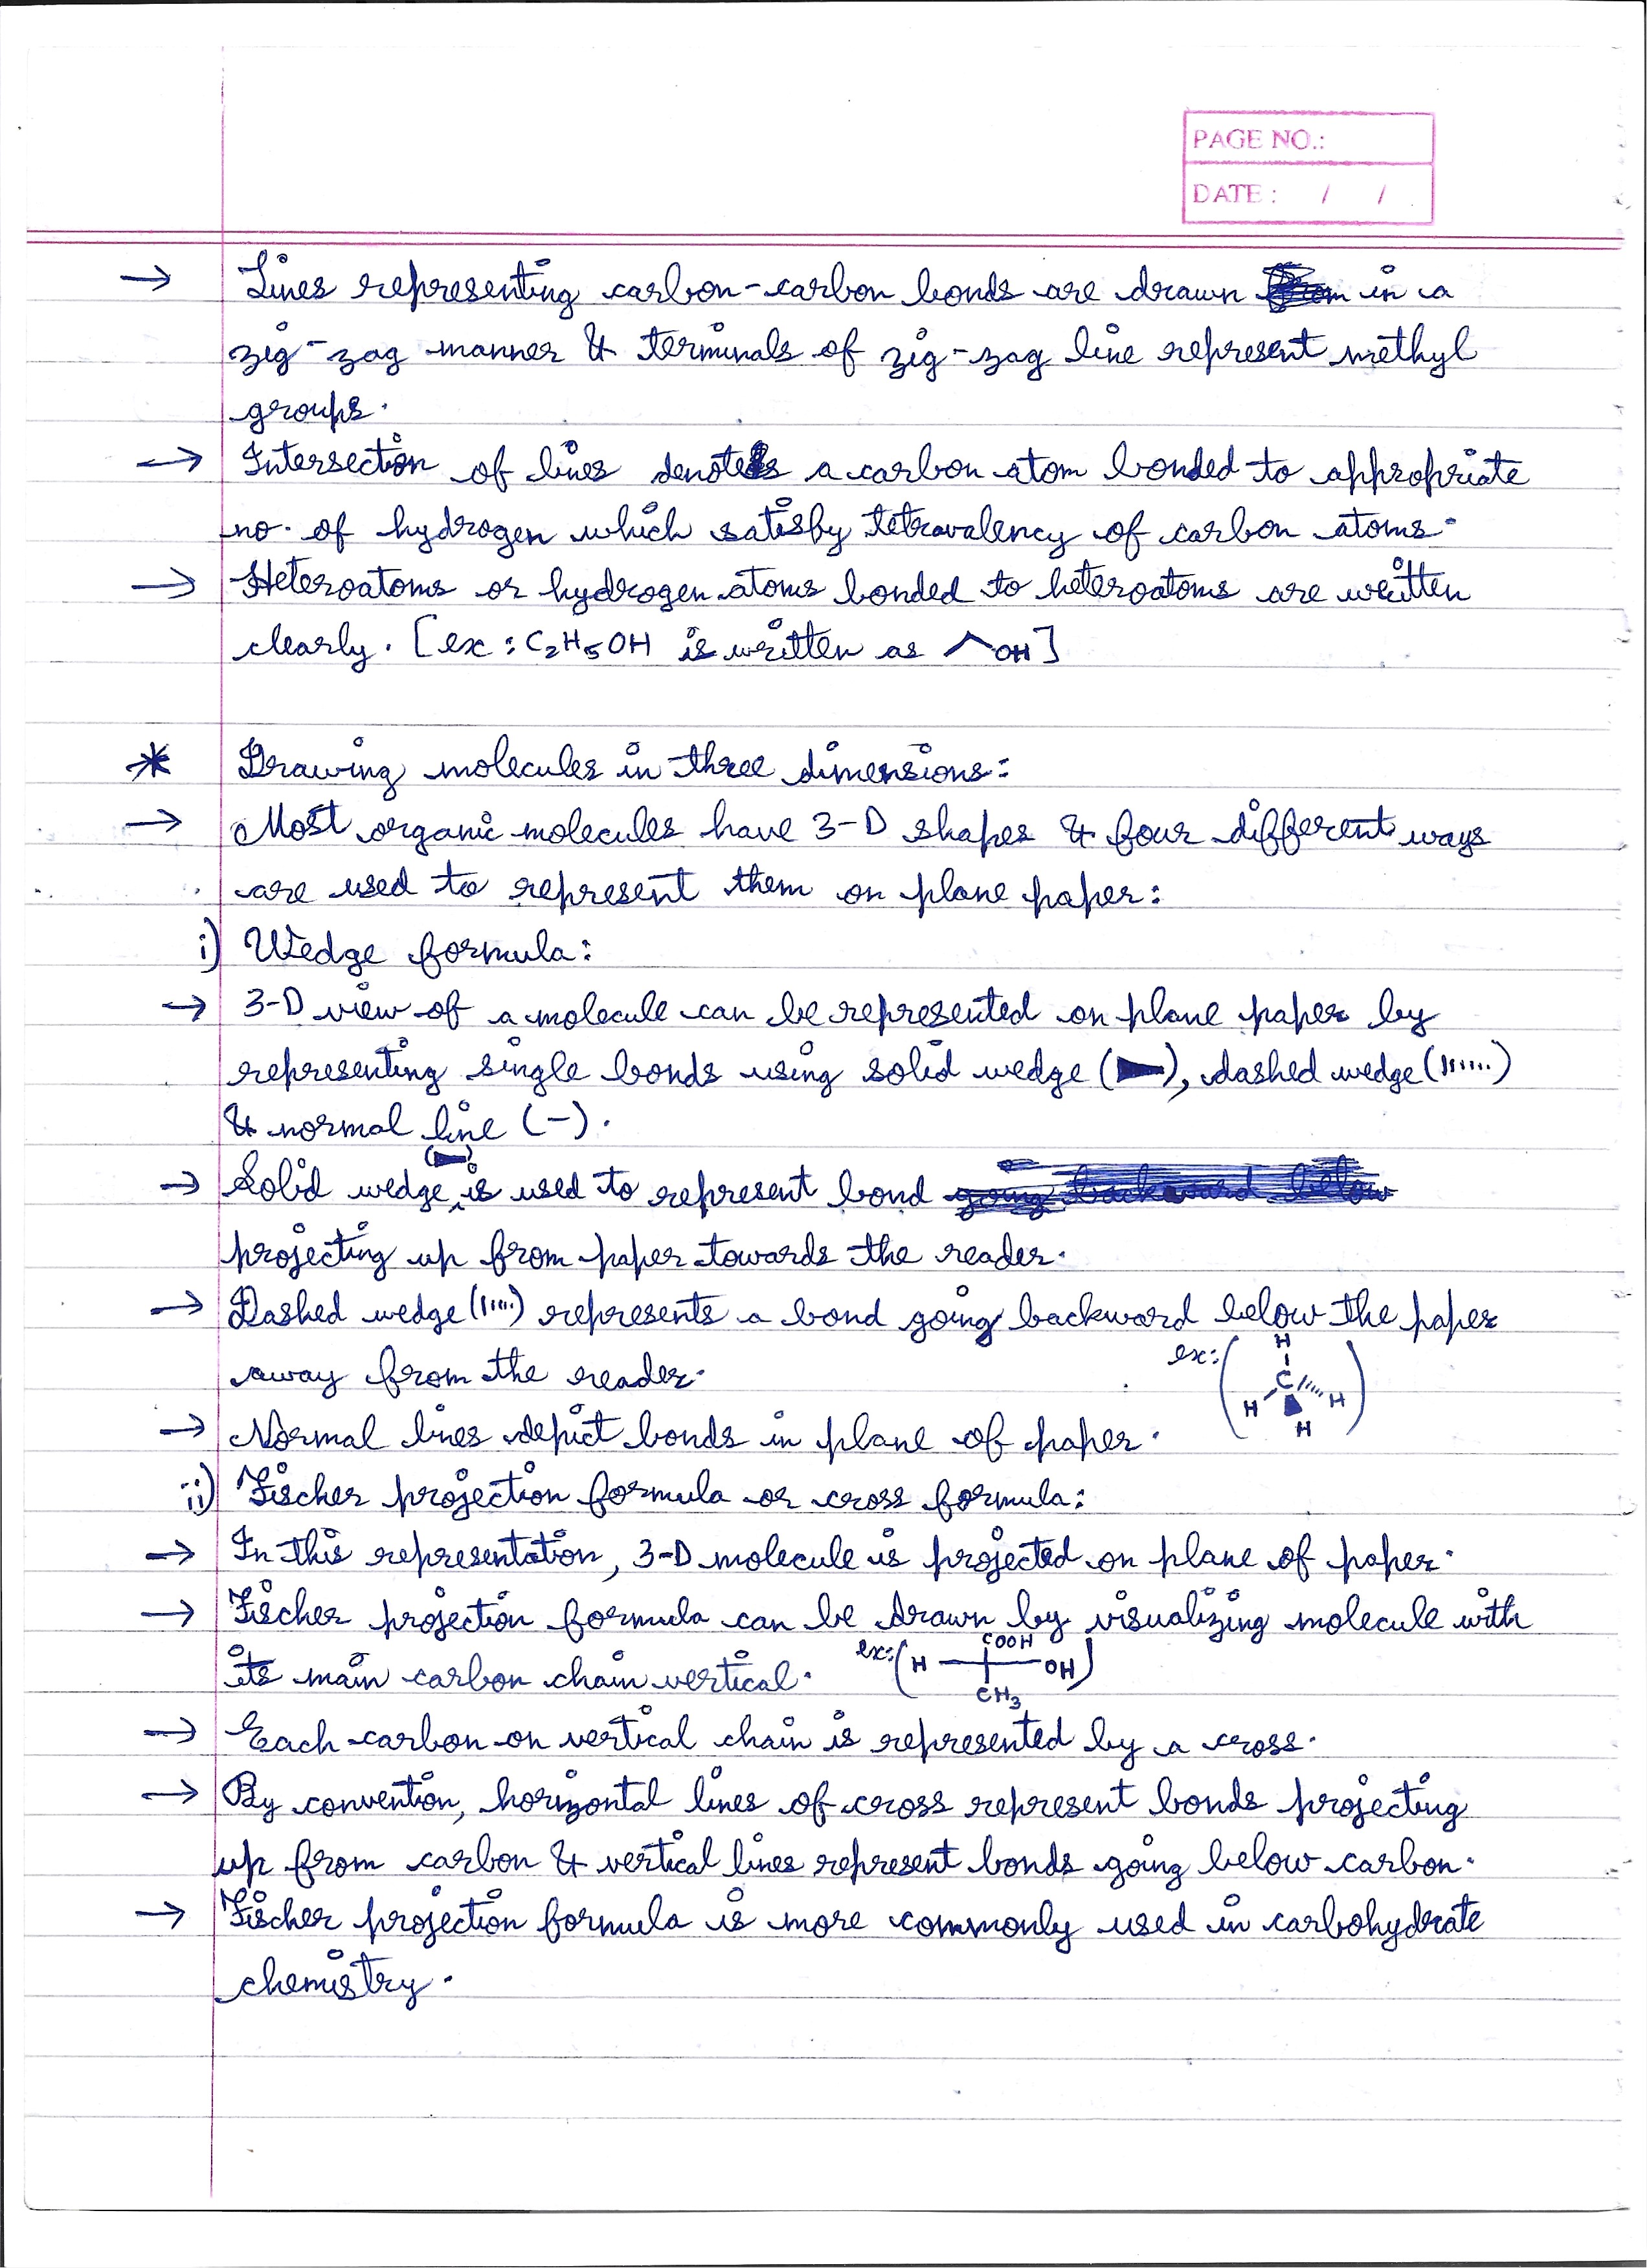 PAGE NO.:
DATE : / /
→ Lines representing carbon-carbon bonds are drawn in a
zig-zag manner & terminals of zig-zag line represent methyl
groups.
→ Intersection of lines denotes a carbon atom bonded to appropriate
no. of hydrogen which satisby tetravalency of carbon atoms.
→ Heteroatoms or hydrogen atoms bonded to heteroatoms are written
clearly. [ex : C₂H₅OH is written as OH]
* Drawing molecules in three dimensions:
→ Most organic molecules have 3-D shapes & four different ways
are used to represent them on plane paper:
i) Wedge formula:
→ 3-D view of a molecule can be represented on plane paper by
representing single bonds using solid wedge ( ), dashed wedge ( )
& normal line (-).
→ Solid wedge ( ) is used to represent bond going backward below
projecting up from paper towards the reader.
→ Dashed wedge ( ) represents a bond going backward below the paper
away from the reader. ex: ( H C H H H )
→ Normal lines depict bonds in plane of paper.
ii) Fischer projection formula or cross formula:
→ In this representation, 3-D molecule is projected on plane of paper.
→ Fischer projection formula can be drawn by visualizing molecule with
its main carbon chain vertical. ex: ( COOH H OH CH₃ )
→ Each carbon on vertical chain is represented by a cross.
→ By convention, horizontal lines of cross represent bonds projecting
up from carbon & vertical lines represent bonds going below carbon.
→ Fischer projection formula is more commonly used in carbohydrate
chemistry.